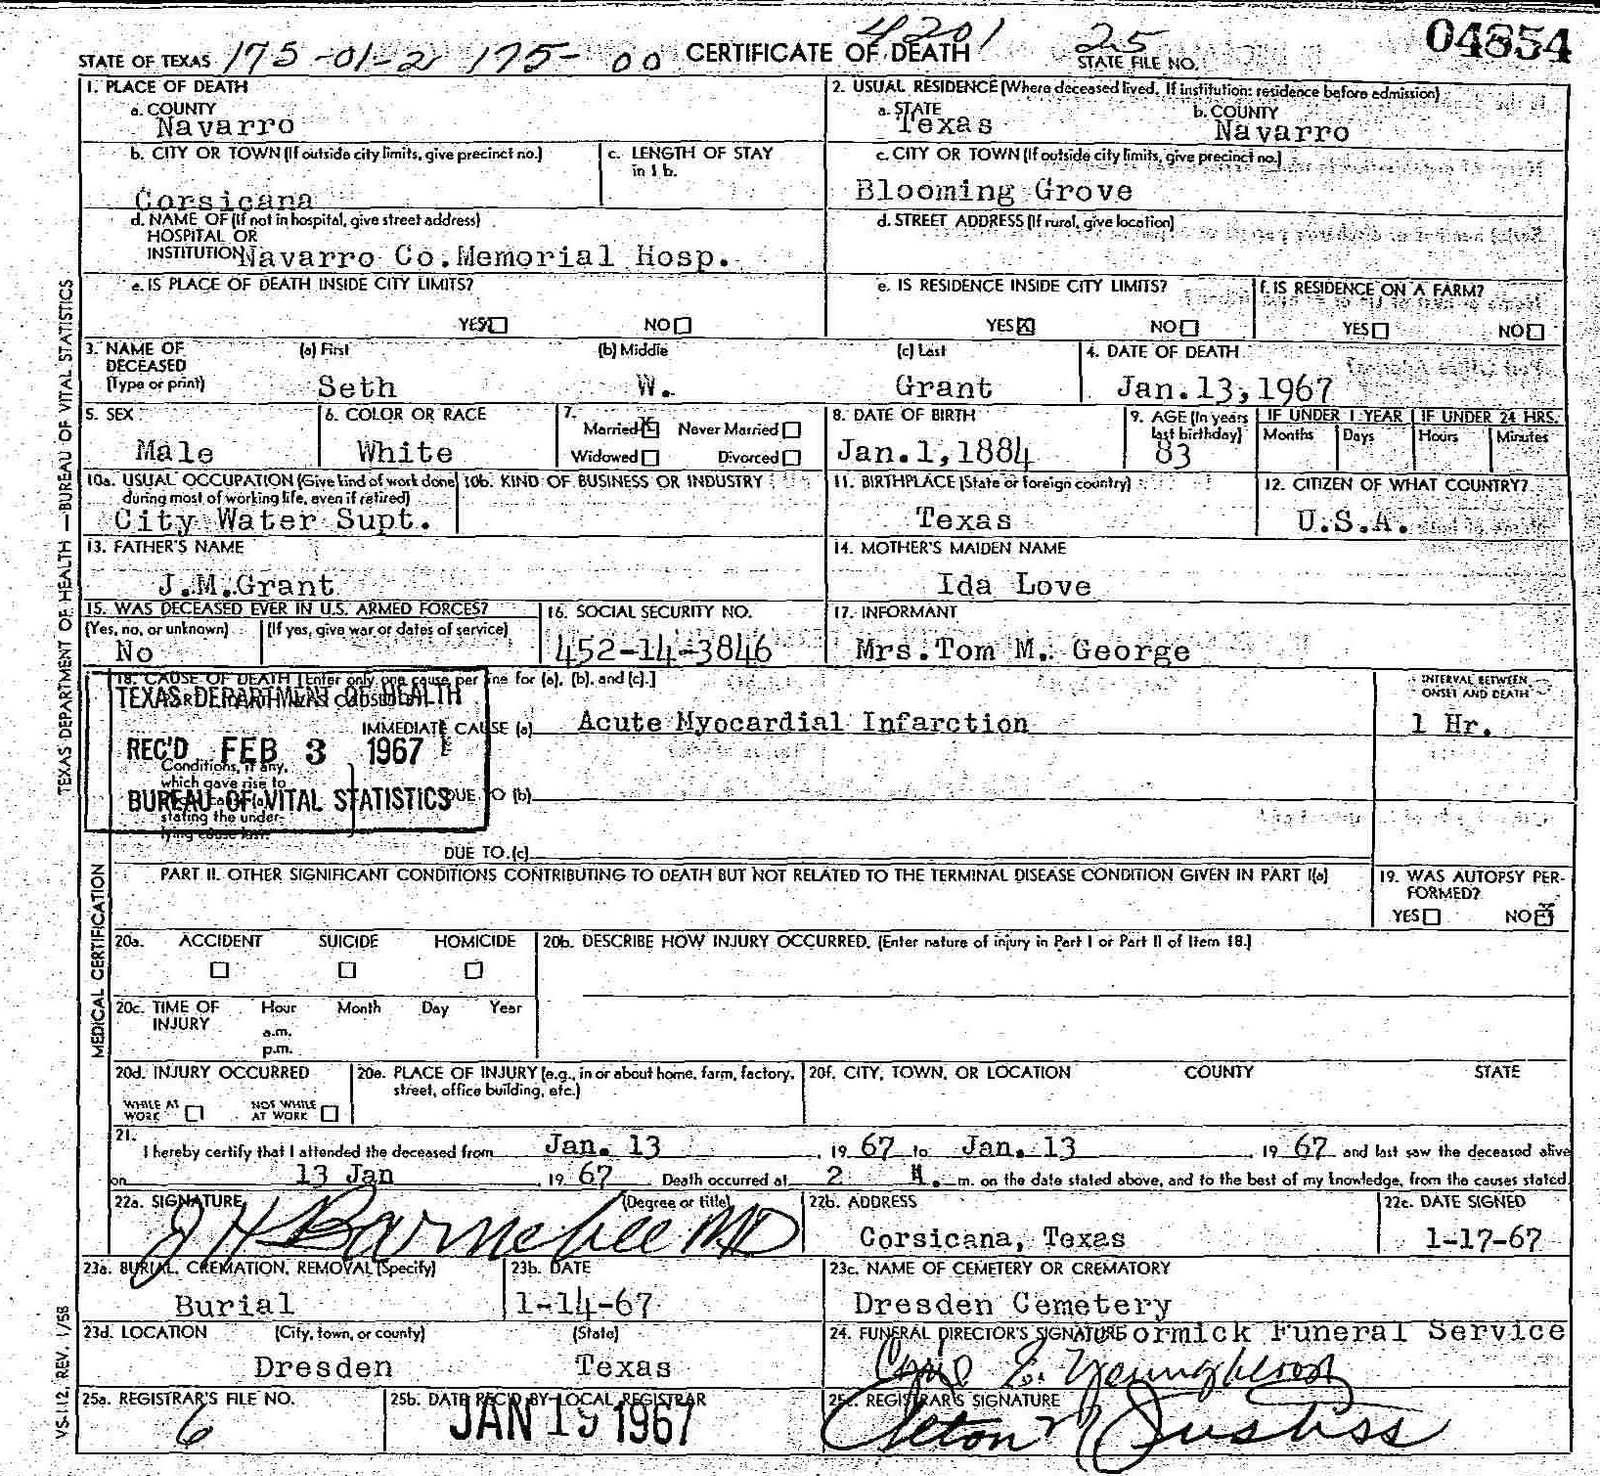 STATE OF TEXAS 175-01-2 175-00 CERTIFICATE OF DEATH 4201 25 STATE FILE NO. 04854
1. PLACE OF DEATH
a. COUNTY
Navarro
2. USUAL RESIDENCE (Where deceased lived. If institution: residence before admission)
a. STATE b. COUNTY
Texas Navarro
b. CITY OR TOWN (If outside city limits, give precinct no.)
Corsicana
c. LENGTH OF STAY
in 1 b.
c. CITY OR TOWN (If outside city limits, give precinct no.)
Blooming Grove
d. NAME OF (If not in hospital, give street address)
HOSPITAL OR
INSTITUTION Navarro Co. Memorial Hosp.
d. STREET ADDRESS (If rural, give location)
e. IS PLACE OF DEATH INSIDE CITY LIMITS?
YES NO
e. IS RESIDENCE INSIDE CITY LIMITS?
YES NO
f. IS RESIDENCE ON A FARM?
YES NO
3. NAME OF DECEASED
(Type or print)
(a) First (b) Middle (c) Last
Seth W. Grant
4. DATE OF DEATH
Jan. 13, 1967
5. SEX
Male
6. COLOR OR RACE
White
7.
Married Never Married
Widowed Divorced
8. DATE OF BIRTH
Jan. 1, 1884
9. AGE (In years
last birthday)
83
IF UNDER 1 YEAR IF UNDER 24 HRS.
Months Days Hours Minutes
10a. USUAL OCCUPATION (Give kind of work done
during most of working life, even if retired)
City Water Supt.
10b. KIND OF BUSINESS OR INDUSTRY
11. BIRTHPLACE (State or foreign country)
Texas
12. CITIZEN OF WHAT COUNTRY?
U.S.A.
13. FATHER'S NAME
J.M.Grant
14. MOTHER'S MAIDEN NAME
Ida Love
15. WAS DECEASED EVER IN U.S. ARMED FORCES?
(Yes, no, or unknown) (If yes, give war or dates of service)
No
16. SOCIAL SECURITY NO.
452-14-3846
17. INFORMANT
Mrs. Tom M. George
18. CAUSE OF DEATH [Enter only one cause per line for (a), (b), and (c).]
TEXAS DEPARTMENT OF HEALTH
REC'D FEB 3 1967
BUREAU OF VITAL STATISTICS
IMMEDIATE CAUSE (a) Acute Myocardial Infarction
INTERVAL BETWEEN
ONSET AND DEATH
1 Hr.
Conditions, if any,
which gave rise to
stating the under-
lying cause last.
DUE TO (b)
DUE TO (c)
PART II. OTHER SIGNIFICANT CONDITIONS CONTRIBUTING TO DEATH BUT NOT RELATED TO THE TERMINAL DISEASE CONDITION GIVEN IN PART I(a)
19. WAS AUTOPSY PER-
FORMED?
YES NO
20a. ACCIDENT SUICIDE HOMICIDE
20b. DESCRIBE HOW INJURY OCCURRED. (Enter nature of injury in Part I or Part II of Item 18.)
20c. TIME OF
INJURY
Hour Month Day Year
a.m.
p.m.
20d. INJURY OCCURRED
WHILE AT
WORK
NOT WHILE
AT WORK
20e. PLACE OF INJURY (e.g., in or about home, farm, factory,
street, office building, etc.)
20f. CITY, TOWN, OR LOCATION COUNTY STATE
21.
I hereby certify that I attended the deceased from Jan. 13, 19 67 to Jan. 13, 19 67 and last saw the deceased alive
on 13 Jan, 19 67. Death occurred at 2 m. on the date stated above, and to the best of my knowledge, from the causes stated.
22a. SIGNATURE (Degree or title)
J H Barnebee MD
22b. ADDRESS
Corsicana, Texas
22c. DATE SIGNED
1-17-67
23a. BURIAL, CREMATION, REMOVAL (Specify)
Burial
23b. DATE
1-14-67
23c. NAME OF CEMETERY OR CREMATORY
Dresden Cemetery
23d. LOCATION (City, town, or county) (State)
Dresden Texas
24. FUNERAL DIRECTOR'S SIGNATURE ormick Funeral Service
Youngblood
25a. REGISTRAR'S FILE NO.
6
25b. DATE REC'D BY LOCAL REGISTRAR
JAN 19 1967
25c. REGISTRAR'S SIGNATURE
TEXAS DEPARTMENT OF HEALTH — BUREAU OF VITAL STATISTICS
MEDICAL CERTIFICATION
VS-112, REV. 1/58